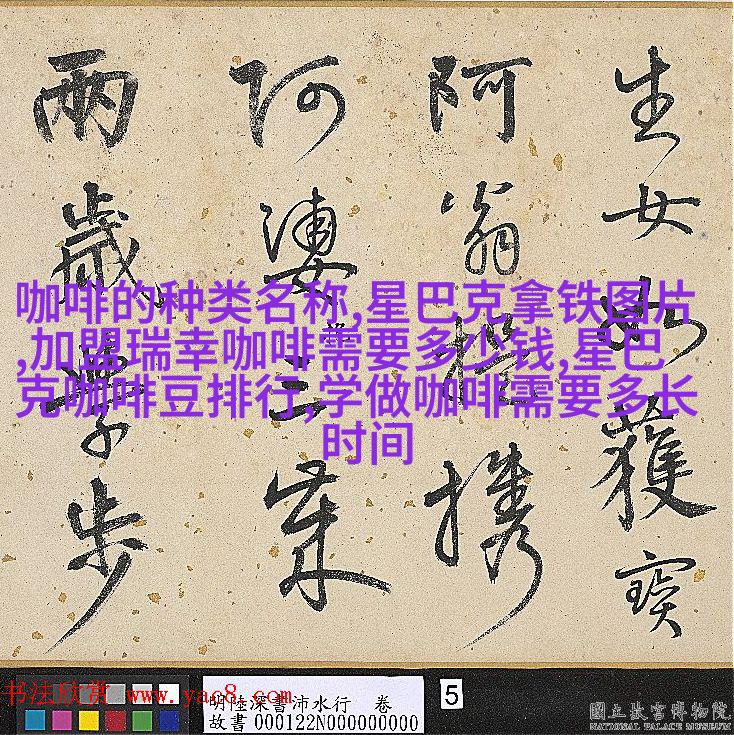 生女如獲寶
阿翁提携
阿婆
兩歲學步
咖啡的种类名称,星巴克拿铁图片
,加盟瑞幸咖啡需要多少钱,星巴
克咖啡豆排行,学做咖啡需要多长
时间
书法欣赏 www.yac8.com
明陸深書沛水行 卷
故書 000122N000000000
5
國立故宮博物院
NATIONAL PALACE MUSEUM